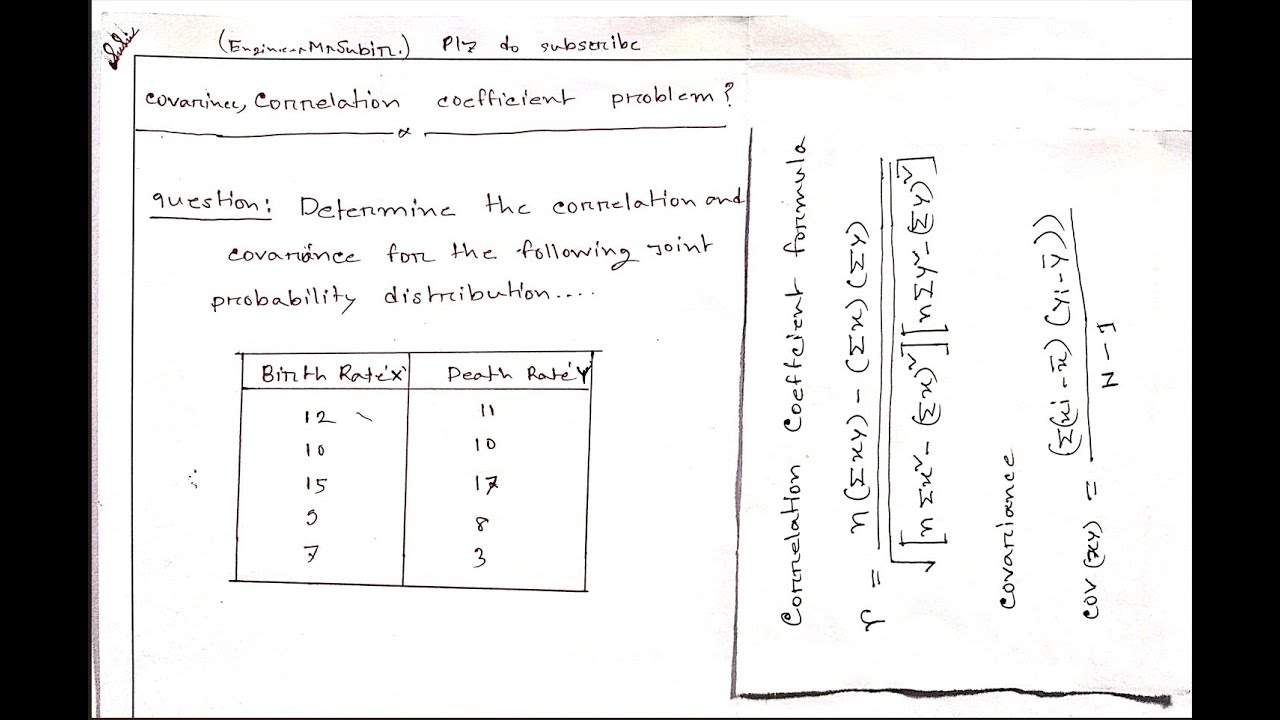 (Engineer Mr Subir.) Plz do subscribe
covarince, Correlation coefficient problem?
question: Determine the correlation and
covariance for the following joint
probability distribution....
Birth Rate'X' Death Rate'Y'
12 11
10 10
15 17
9 8
7 3
Correlation Coefficient formula
r = n(Σxy) - (Σx)(Σy) / √[nΣx² - (Σx)²][nΣy² - (Σy)²]
Covariance
cov(xy) = (Σ(xi - x̄)(yi - ȳ)) / N-1